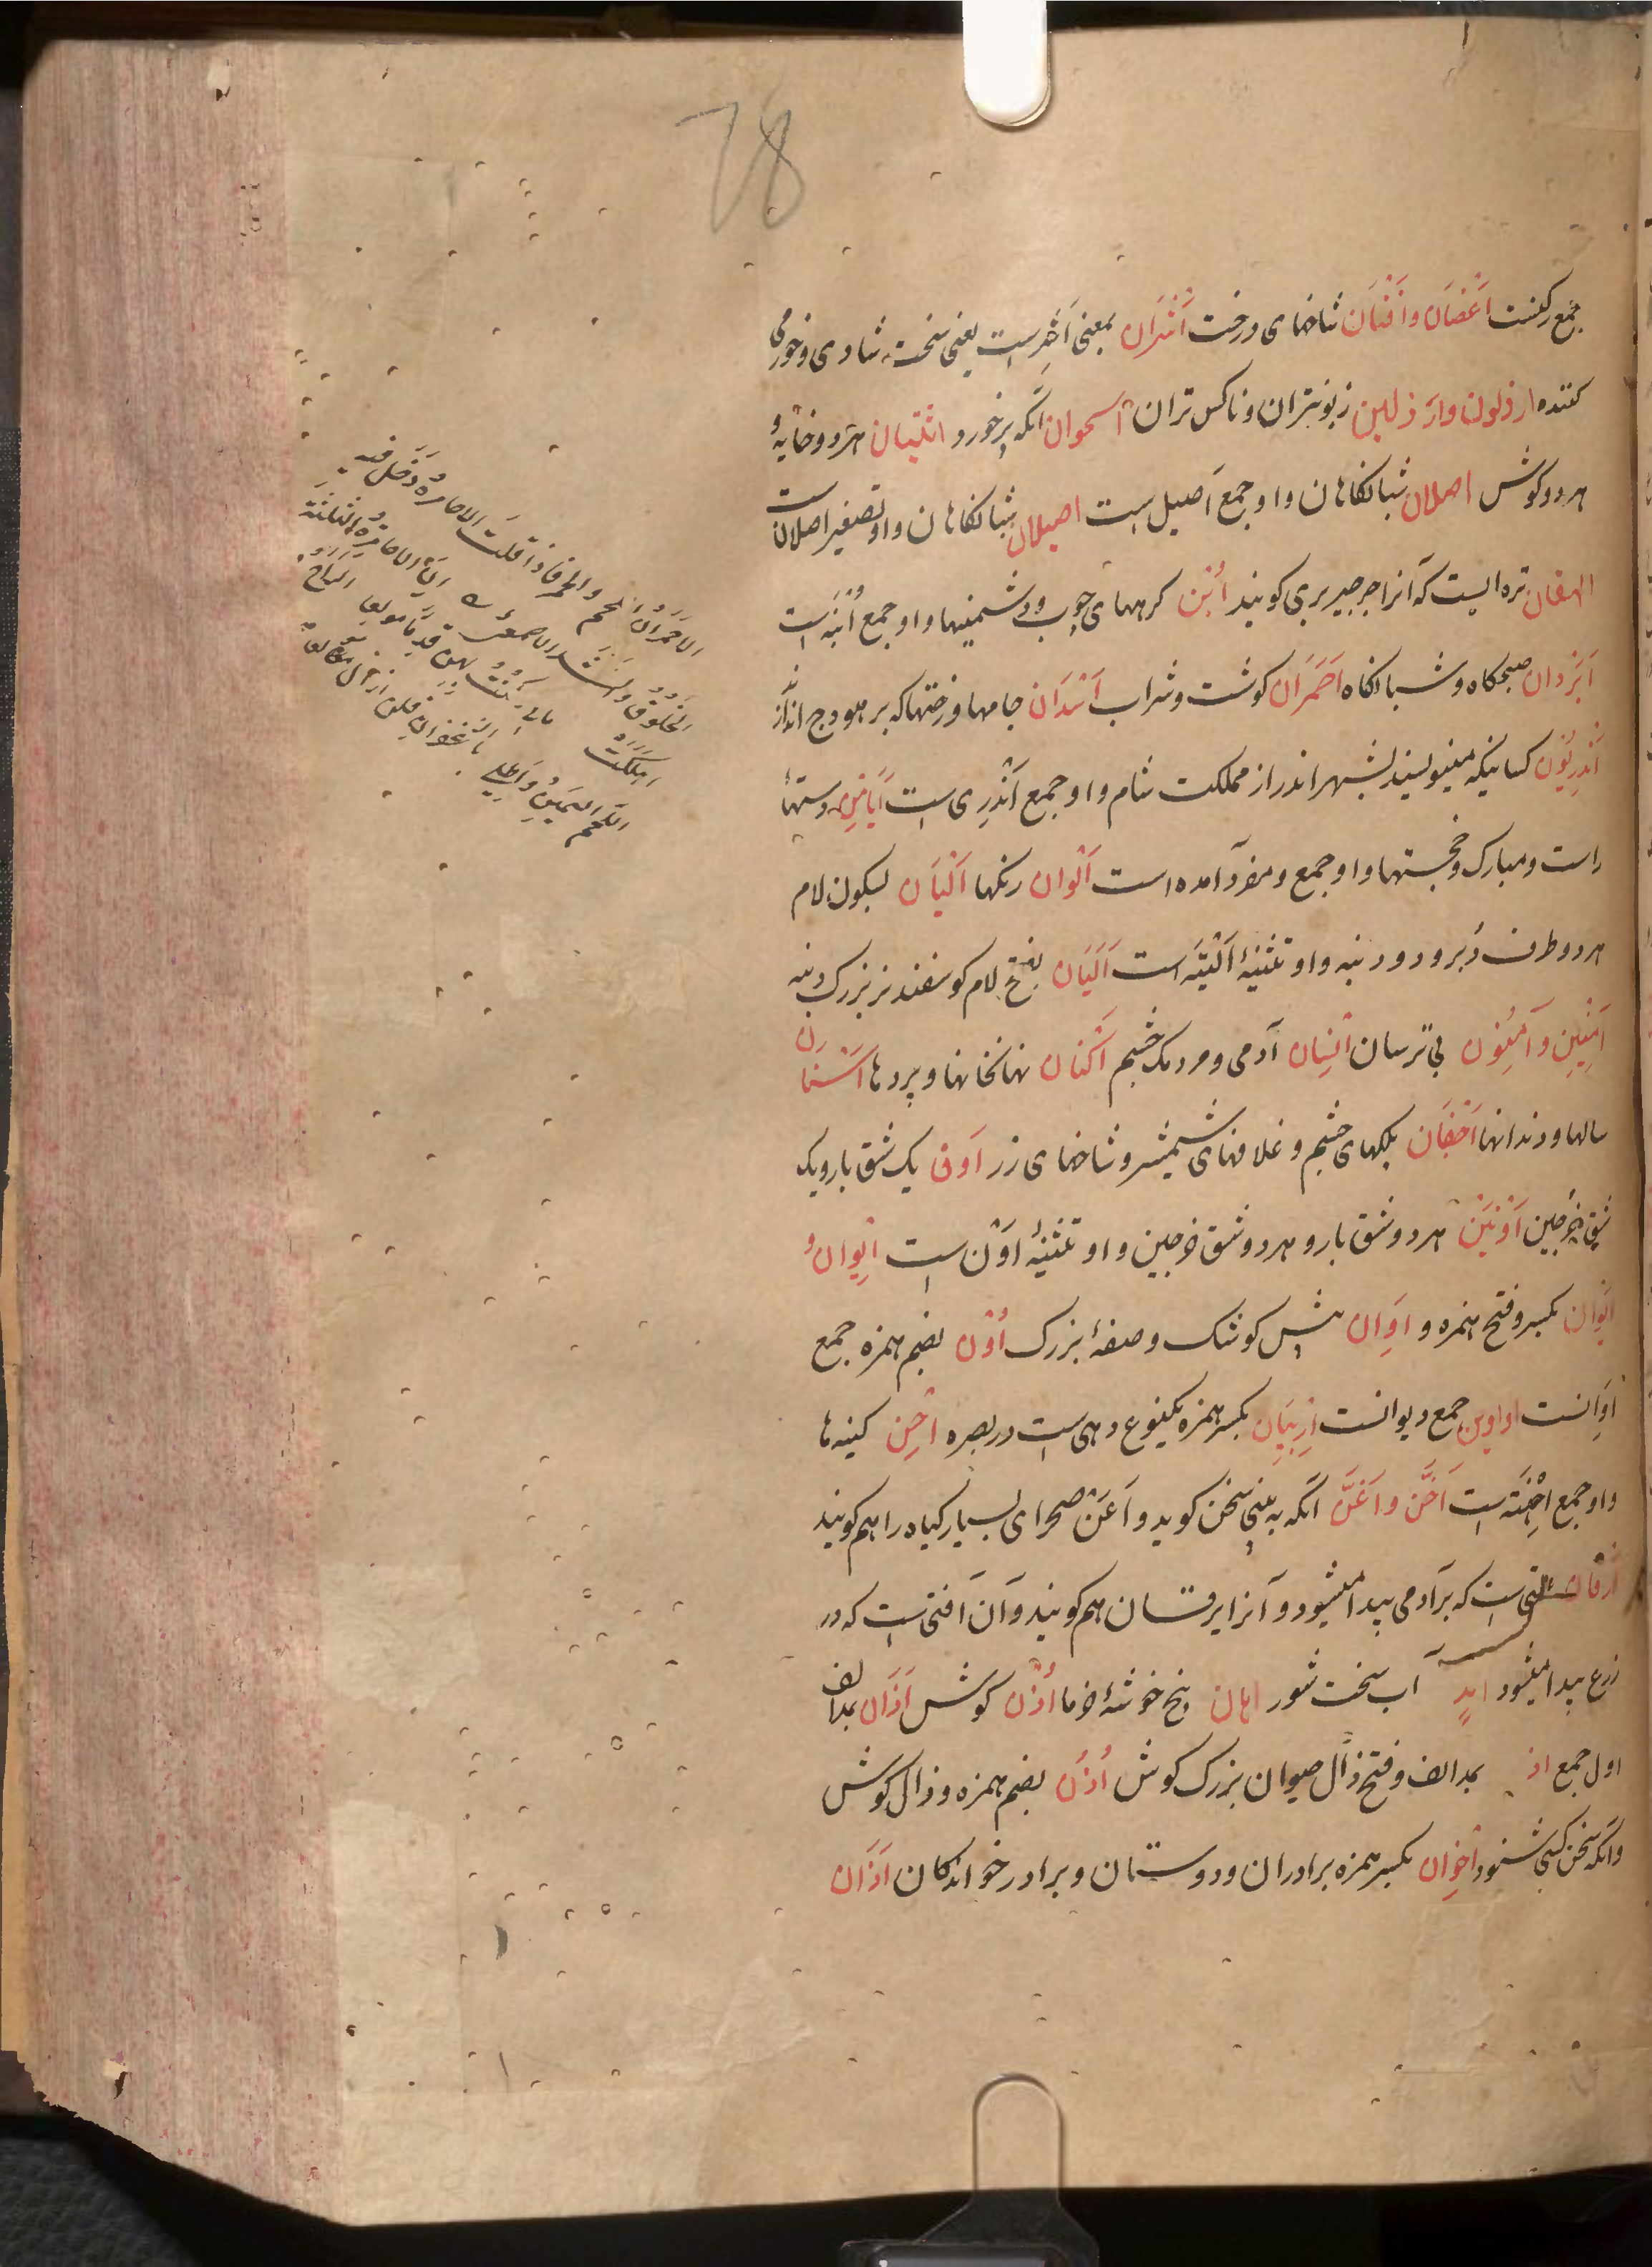 78
جمع رکنست اَغْصَان و اَفْنَان شاخهای درخت اَشْرَان بمعنی اَشِر است یعنی سخت شادی و خورمی
کننده ارذلون و ارذلین زبونتران و ناکس تران اسحوان آنکه پرخورد انثیان هر دو خایه و
هر دو گوش اصلان شبانگاهان و او جمع اَصیل است اصیلان شبانگاهان و او تصغیر اصلان ست
ایهقان تره ایست که آنرا جرجیر بری کویند اُبَن کرههای چوب و دشمنیها و او جمع اُبْنَه است
اَبْرَدان صبحکاه و شبانکاه اَحْمَرَان کوشت و شراب اَسْدَان جامها و رختها که بر هودج اندازند
اَنْدَرِیُون کسانیکه منسوبند بشهر اندر از مملکت شام و او جمع اَنْدَرِی ست اَیَامِن دستهاء
راست و مبارک و خجستها و او جمع و مفرد آمده است اَلْوان رنکها اَلْیَان بسکون لام
هر دو طرف دُبر و دو دنبه و او تثنیهٔ اَلْیَتَه است اَلَیَان بفتح لام کوسفند نر بزرک دنبه
آمِنِین و آمِنُون بی ترسان اِنْسَان آدمی و مردمک چشم اَکْنَان نهانخانها و پردها اَسْنان
سالها و دندانها اَجْفَان پلکهای چشم و غلافهای شمشیر و شاخهای رز اَوْن یک شق بار و یک
شق خرجین اَوْنَیْن هر دو شق بار و هر دو شق خرجین و او تثنیهٔ اَوْن ست اِیوان و
اَیْوان بکسر و فتح همزه و اِوَان پیش کوشک و صفهٔ بزرک اُوْن بضم همزه جمع
اِوَانست اواوین جمع دیوانست اِرْبِیَان بکسر همزه یکنوع دهی ست در بصره اِحَن کینه ها
و او جمع اِحْنَة ست اَخَنّ و اَغَنّ آنکه به بینی سخن کوید و اَغَنّ صحرای بسیار کیاه را هم کویند
اَرَقان افتی ست که بر آدمی پیدا میشود و آنرا یرقان هم کویند و آن آفتی ست که در
زرع پیدا میشود آب سخت شور اهان بیخ خوشهٔ خرما اُذْن کوش آذَان بمد الف
اول جمع اذ بمد الف و فتح ذال حیوان بزرک کوش اُذُن بضم همزه و ذال کوش
و آنکه سخن کسی شنود اِخْوان بکسر همزه برادران و دوستان و برادر خواندکان اَذَان
الاحمران اللحم والخمر فاذا قلت الاحامرة دخل فیه
الخلوق وانشد الاصمعی ان الاحامرة الثلثة
اهلکت مالی و کنت بهن قدما مولعا الراح
اللحم السمین واطلی بالزعفران فلن ازال مولعا